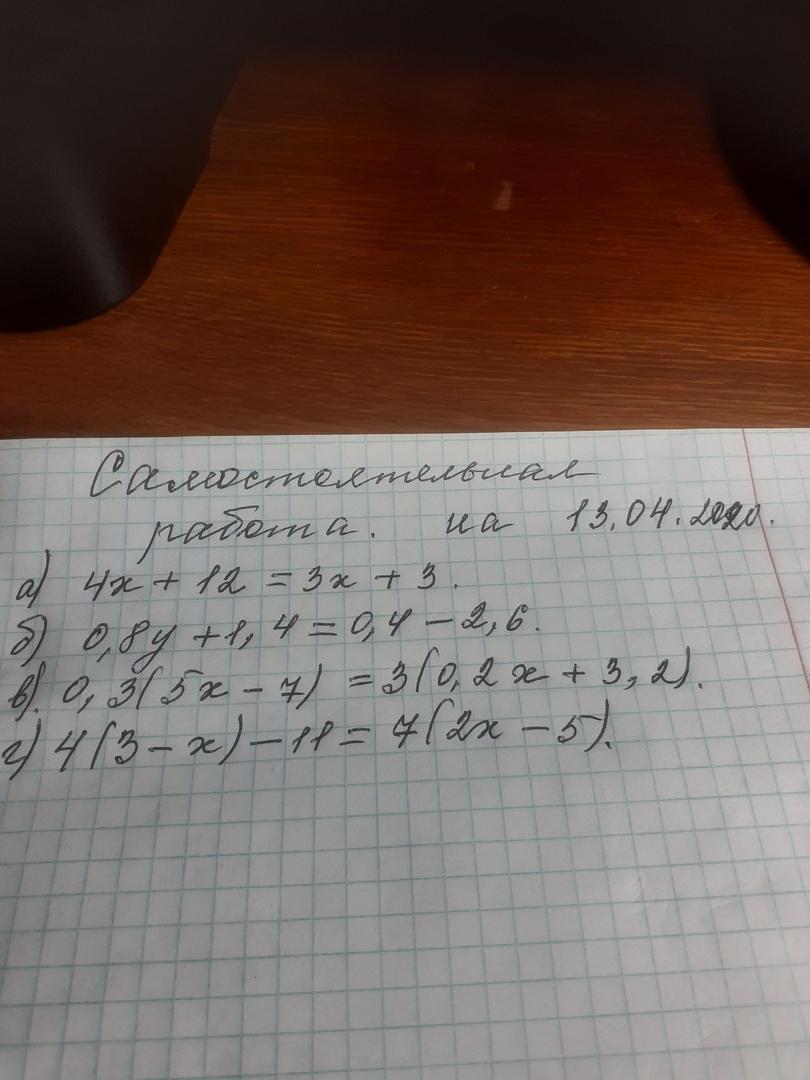 Самостоятельная
работа. на 13.04.2020.
а) 4х + 12 = 3х + 3.
б) 0,8у + 1,4 = 0,4 - 2,6.
в). 0,3(5х - 7) = 3(0,2х + 3,2).
г) 4(3 - х) - 11 = 7(2х - 5).